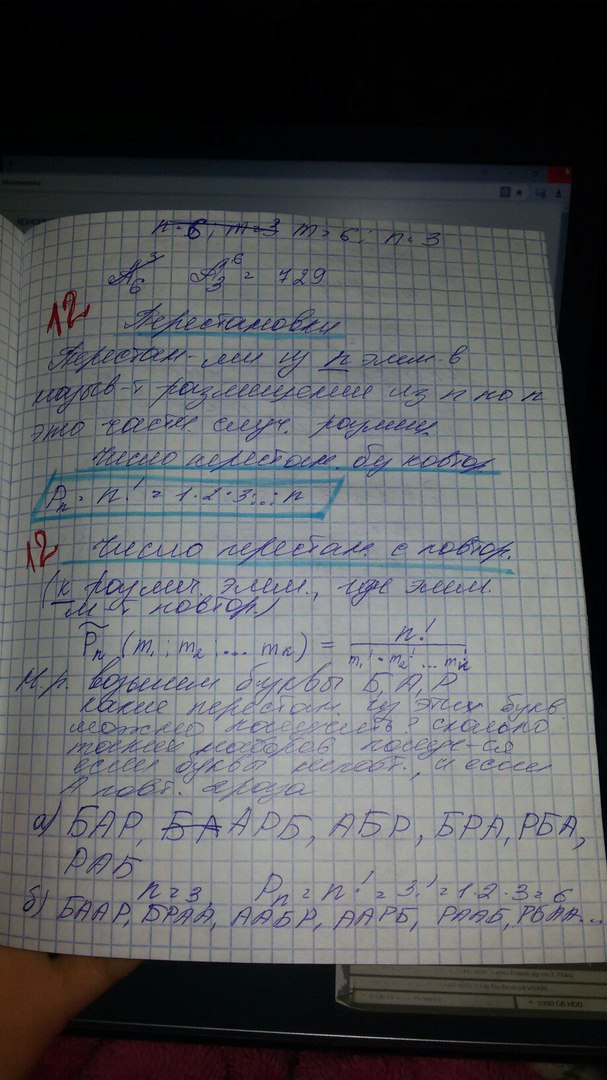 n=6; m=3 m=6; n=3
A₆³ A₃⁶ = 729
12
Перестановки
Перестан-ми из n элем-в
назыв-т размещения из n по n
это частн случ. размещ
Число перестан. без повтор
Pₙ = n! = 1·2·3·...·n
12 Число перестан. с повтор.
(к различ. элем., где элем.
м-т повтор.)
P̃ₙ (m₁; m₂; ... mₖ) = n! / m₁!·m₂!...mₖ!
Н.р. возьмем буквы Б, А, Р
какие перестан. из этих букв
можно получить? сколько
таких наборов получ-ся
если буквы неповт., и если
А повт. 2раза
а) БАР, БА АРБ, АБР, БРА, РБА,
РАБ
n=3, Pₙ = n! = 3! = 1·2·3 = 6
б) БААР, БРАА, ААБР, ААРБ, РААБ, РБАА...